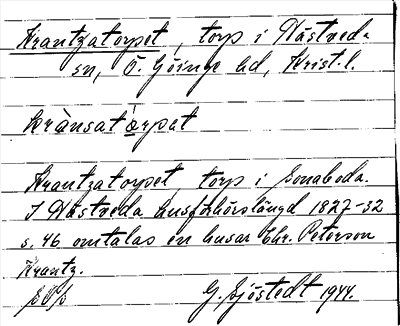 Krantzatorpet, torp i Nästveda
sn, Ö. Göinge hd, Krist. l.
krànsatårpat
Krantzatorpet, torp i Sonaboda.
I Nästveda husförhörslängd 1827-32
s. 46 omtalas en husar Chr. Peterson
Krantz.
G. Sjöstedt 1944.